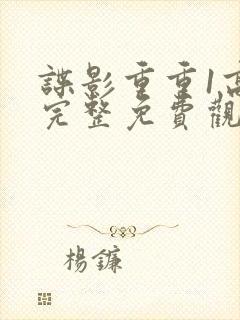 諜影重重1高
完整免費觀
楊鐮